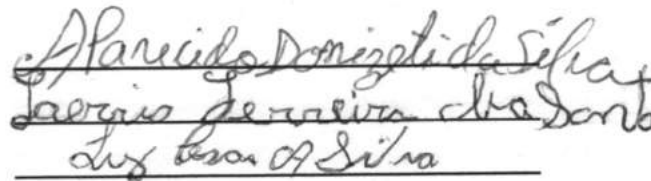 Aparecido Donizeti da Silva
Laercio Ferreira dos Santos
Luiz Cesar A Silva